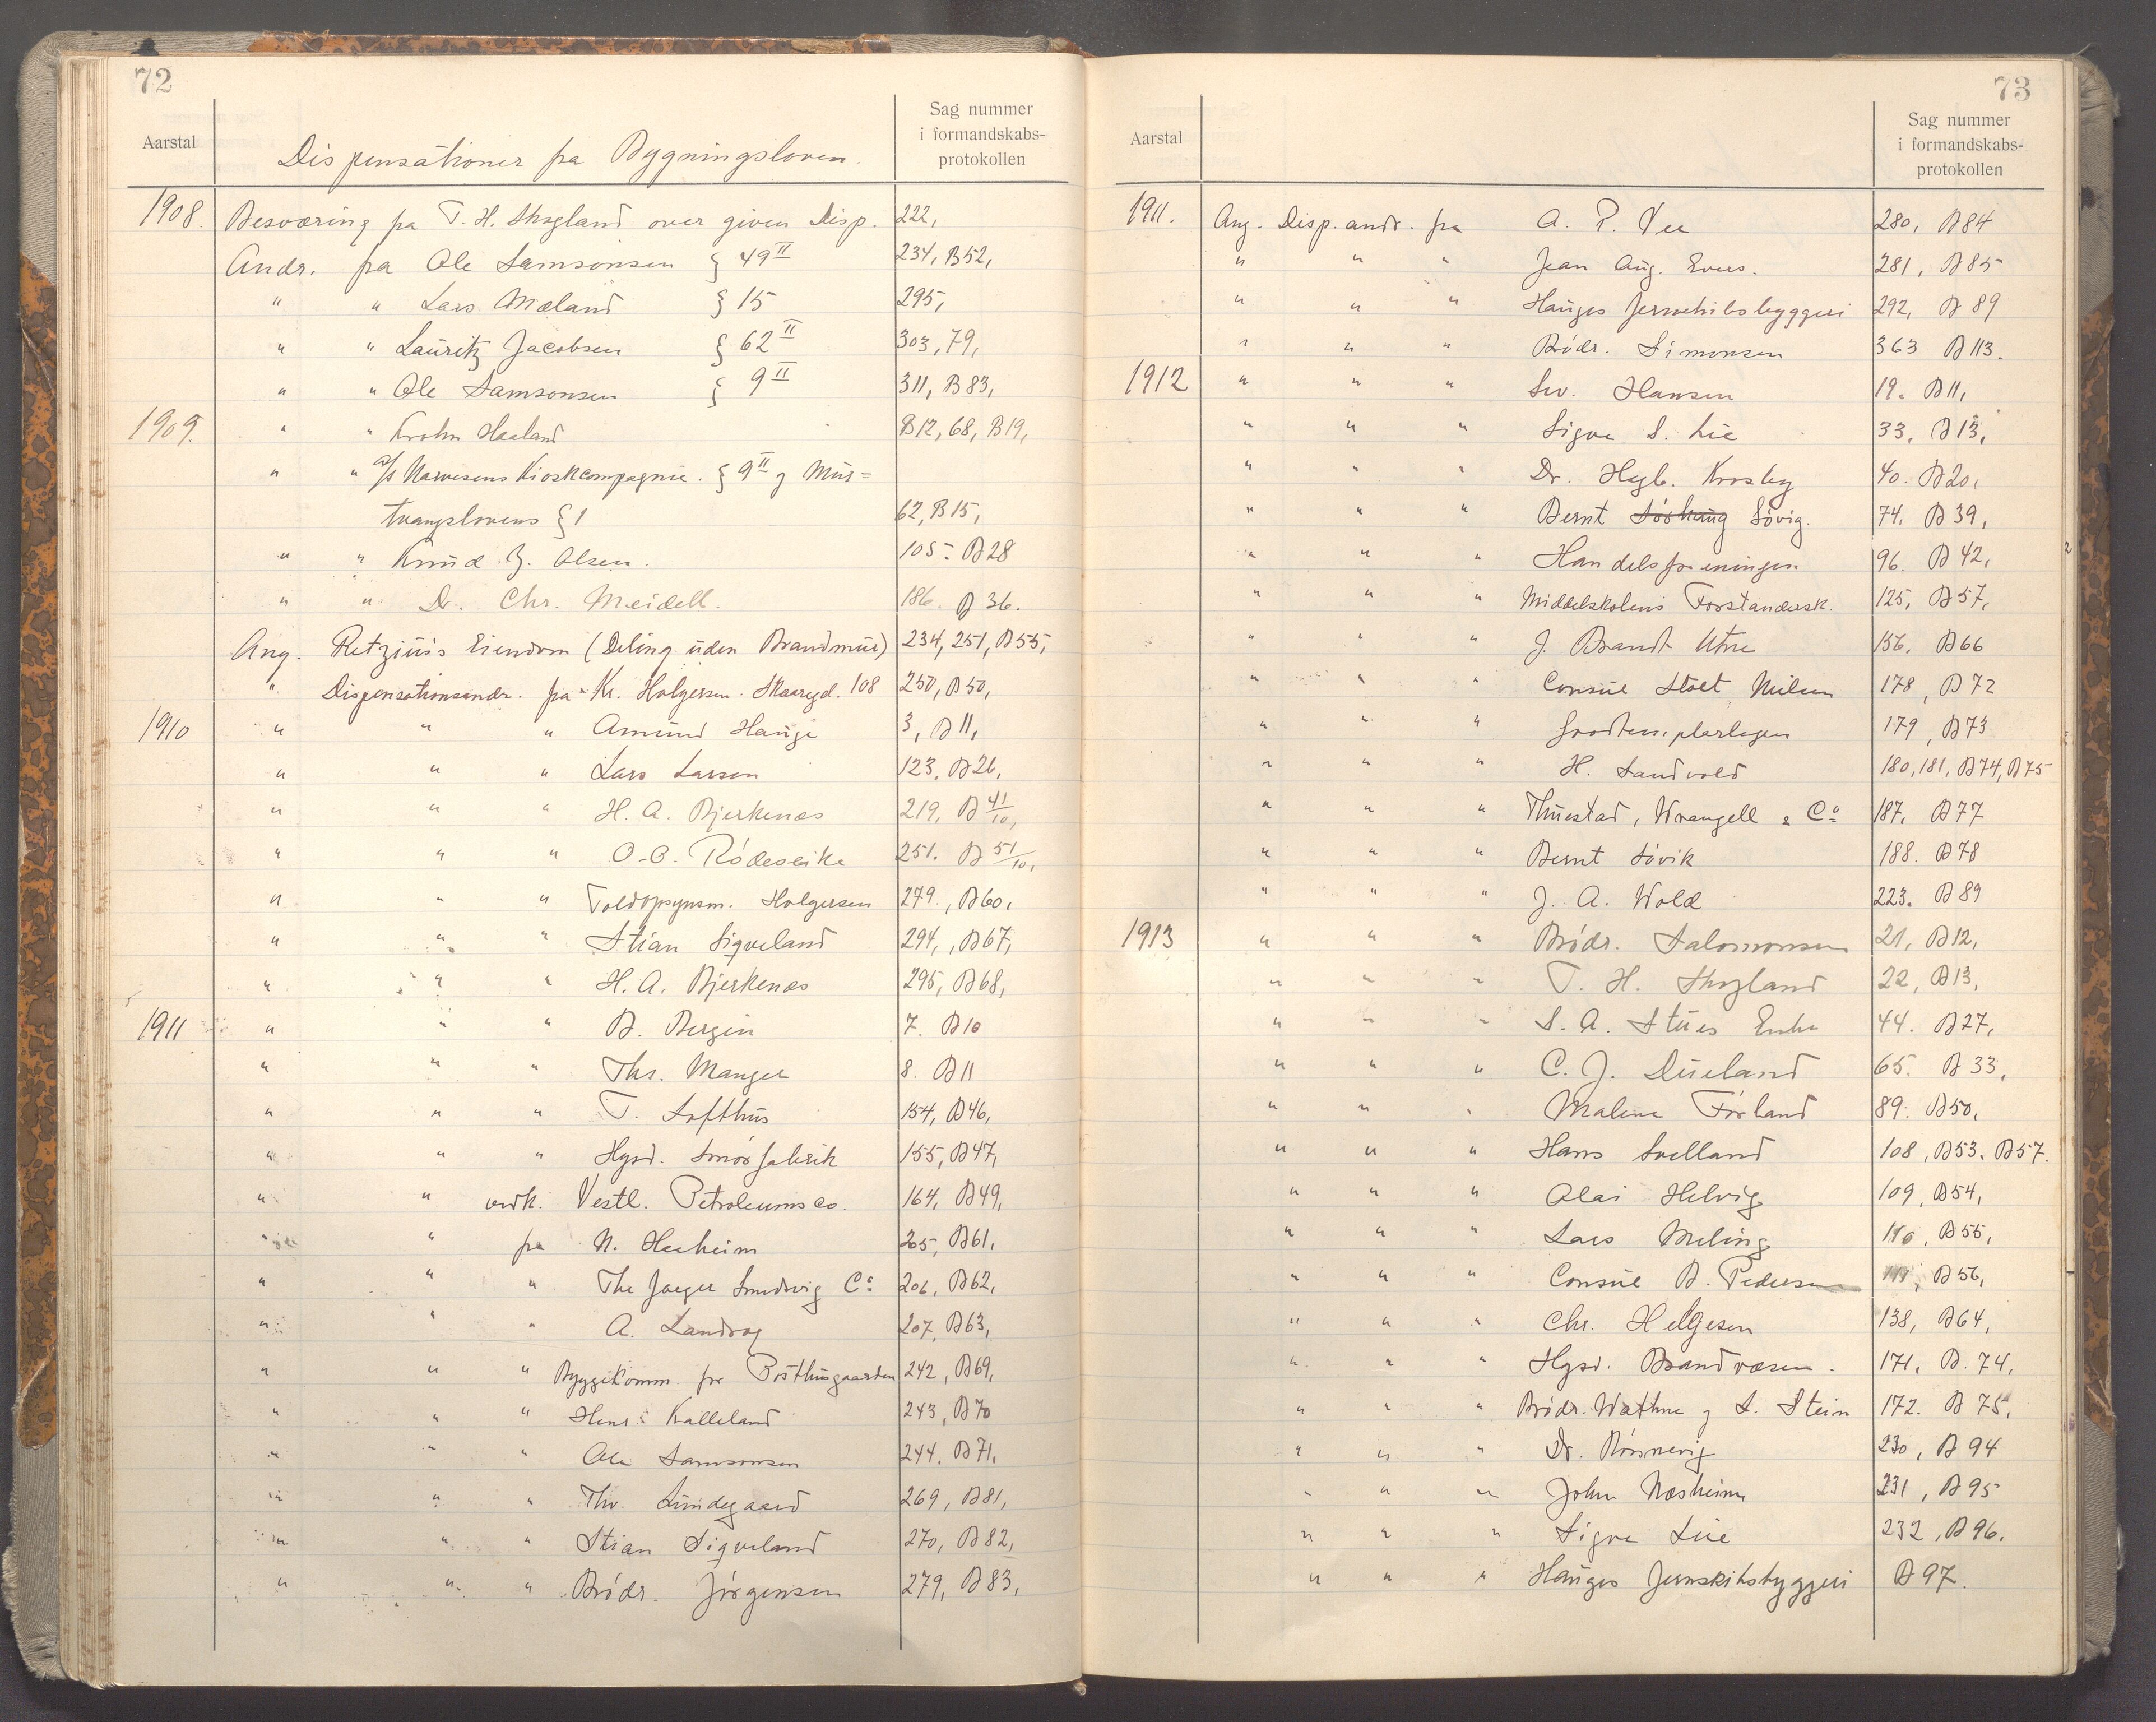 72
Aarstal
Dispensationer fra Bygningsloven.
Sag nummer
i formandskabs-
protokollen
1908. Besværing fra T. H. Skogland over given Disp. 222,
Andr. fra Ole Samsonsen § 49 II 234, B52,
" " Lars Mæland § 15 295,
" " Lauritz Jacobsen § 62 II 303, 79,
" " Ole Samsonsen § 9 II 311, B83,
1909. " " Krohn Haaland B12, 68, B19,
" " A/s Narvesens Kioskcompagnie. § 9 II og Mur=
tvangslovens § 1 62, B15,
" " Knud Olsen. 105. B28
" " Dr. Chr. Meidell. 186. B 36.
Ang. Retzius's Eiendom (Deling uden Brandmur) 234, 251, B55,
" Dispensationsandr. fra Kr. Holgersen. Skaaregd. 108 250, B50,
1910 " " " Amund Hauge 3, B11,
" " " Lars Larsen 123, B26,
" " " H. A. Bjerkenes 219, B 41/10,
" " " O. O. Rödeseike 251. B 51/10,
" " " Toldopsynsm. Holgersen 279, B60,
" " " Stian Sigveland 294, B67,
" " " H. A. Bjerkenes 295, B68,
1911 " " " B. Bergin 7. B10
" " " Ths. Manger 8. B11
" " " T. Lofthus 154, B46,
" " " Hgsd. Smörfabrik 155, B47,
" " vedk. Vestl. Petroleumsco. 164, B49,
" " fra N. Heeheim 205, B61,
" " " The Jaeger Smedsvig Co 206, B62,
" " " A. Landvog 207, B63,
" " " Byggekomm. for Posthusgaarden 242, B69,
" " " Kalleland 243, B70
" " " Ole Samsonsen 244. B71,
" " " Thv. Lindegaard 269, B81,
" " " Stian Sigveland 270, B82,
" " " Brödr. Jörgensen 279, B83,
73
Aarstal
Sag nummer
i formandskabs-
protokollen
1911. Ang. Disp. andr. fra A. P. Vee 280, B84
" " " Jean Aug. Evers. 281, B85
" " " Hauges Jernskibsbyggeri 292, B 89
" " " Brödr. Simonsen 363 B113.
1912 " " " Sev. Hansen 19. B11,
" " " Sigve S. Lie 33, B13,
" " " Dr. Hagb. Krosby 40. B20,
" " " Bernt Sörhaug Sövig. 74. B39,
" " " Handelsforeningen 96. B42,
" " " Middelskolens Forstandersk. 125, B57,
" " " J. Brandt Utne 156, B66
" " " Consul Stolt Nielsen 178, B72
" " " Goodtemplarlogen 179, B73
" " " H. Sandvold 180, 181, B74, B75
" " " Thuestad, Wrangell & Co 187, B77
" " " Bernt Sövik 188. B78
" " " J. A. Wold 223. B89
1913 " " " Brödr. Salomonsen 21, B12,
" " " T. H. Skogland 22, B13,
" " " S. A. Stues Enke 44. B27,
" " " C. J. Dueland 65. B 33,
" " " Maline Förland 89. B50,
" " " Hans Svelland 108, B53. B57.
" " " Olai Helvig 109, B54,
" " " Lars Meling 110, B55,
" " " Consul B. Pedersen 111, B56,
" " " Chr. Helgesen 138, B64,
" " " Hgsd. Brandvæsen. 171, B. 74,
" " " Brödr. Wathne og S. Stein 172. B 75,
" " " Dr. Rönnevig 230, B 94
" " " John Næsheim 231, B95
" " " Sigve Lie 232, B96.
" " " Hauges Jernskibsbyggeri B 97.